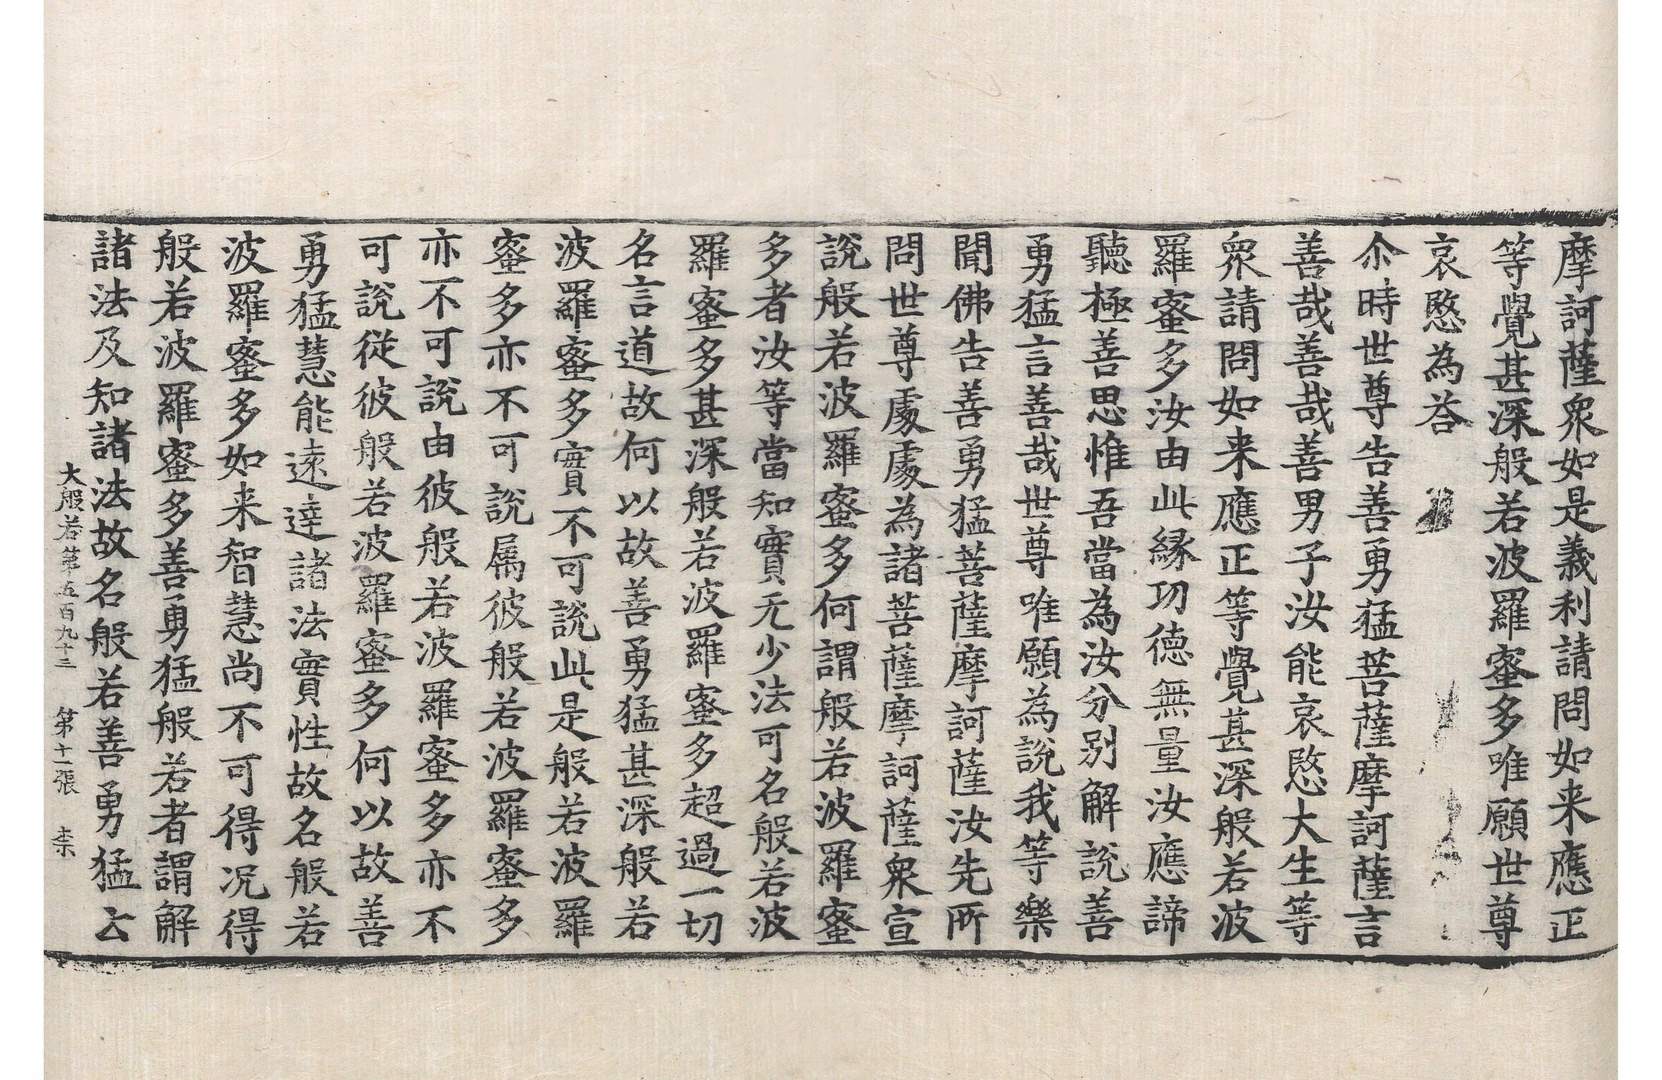 摩訶薩衆如是義利請問如来應正
等覺甚深般若波羅蜜多唯願世尊
哀愍為荅
尒時世尊告善勇猛菩薩摩訶薩言
善哉善哉善男子汝能哀愍大生等
衆請問如来應正等覺甚深般若波
羅蜜多汝由此縁功德無量汝應諦
聽極善思惟吾當為汝分別解說善
勇猛言善哉世尊唯願為說我等樂
聞佛告善勇猛菩薩摩訶薩汝先所
問世尊處處為諸菩薩摩訶薩衆宣
說般若波羅蜜多何謂般若波羅蜜
多者汝等當知實无少法可名般若波
羅蜜多甚深般若波羅蜜多超過一切
名言道故何以故善勇猛甚深般若
波羅蜜多實不可說此是般若波羅
蜜多亦不可說屬彼般若波羅蜜多
亦不可說由彼般若波羅蜜多亦不
可說從彼般若波羅蜜多何以故善
勇猛慧能遠達諸法實性故名般若
波羅蜜多如来智慧尚不可得况得
般若波羅蜜多善勇猛般若者謂解
諸法及知諸法故名般若善勇猛云
大般若第五百九十三 第十一張 柰